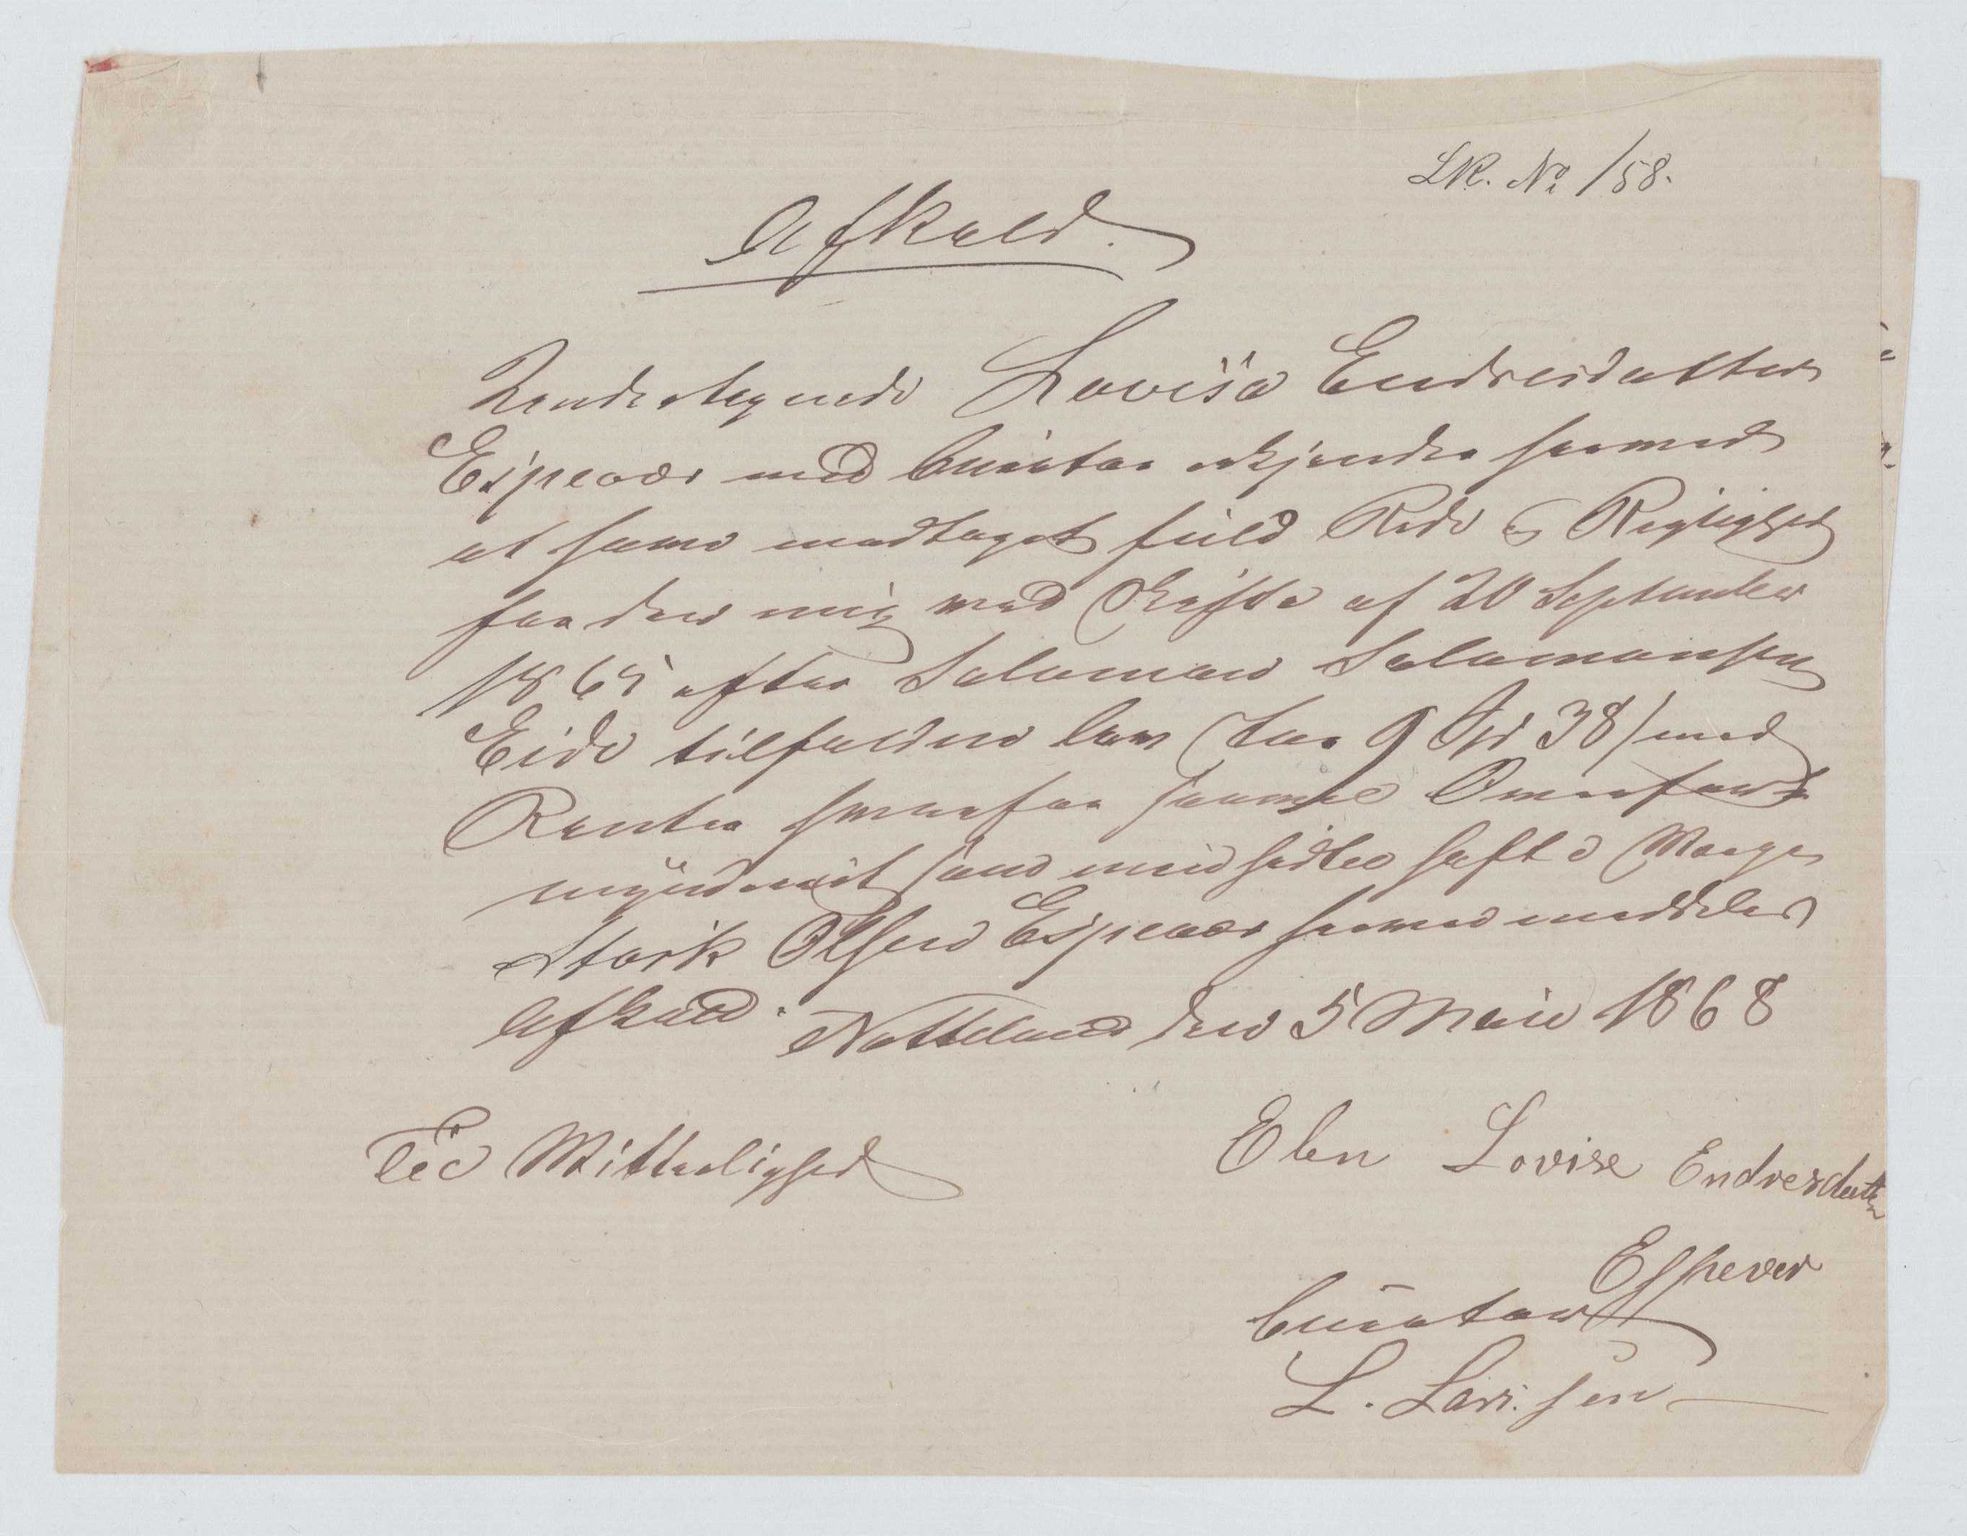 LR. No 158.
Afkald.
Undertegnede Lovisa Endresdatter
Espevær med Curator erkjender hermed
at have modtaget fuld Rede og Rigtighed
for den mig ved Skifte af 20 September
1865 efter Salamon Salamonsen
Eide tilfaldne Arv stor 9 Spd 38 / med
Renter hvorfor saavel Overfor
myndriet som min hidtil hafte Værge
Størk Olsen Espevær hermed meddeles
Afkald. Nattland den 5 Mai 1868
Til Vitterlighed
Elen Lovise Endresdatter
Espever
Curator
L. Larsen